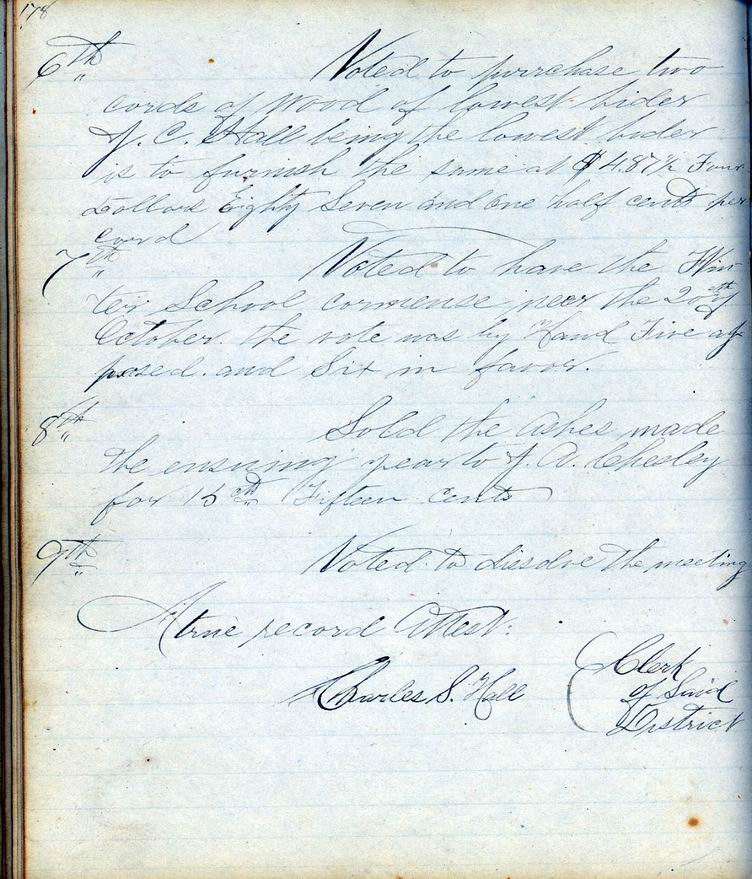 178
6th Voted to purrchase two
cords of Wood of lowest bider
J. C. Hall being the lowest bider
is to furnish the same at $4.87½ Four
Dollars Eighty Seven and one half cents per
cord
7th Voted to have the Win
ter School commense near the 20th of
October. the vote was by Hand Five op
posed. and Six in favor.
8th Sold the Ashes made
the ensuing year to J. A. Chesley
for 15 cts Fifteen cents
9th Voted to dissolve the meeting
A true record Attest.
Charles S. Hall Clerk
of Said
District